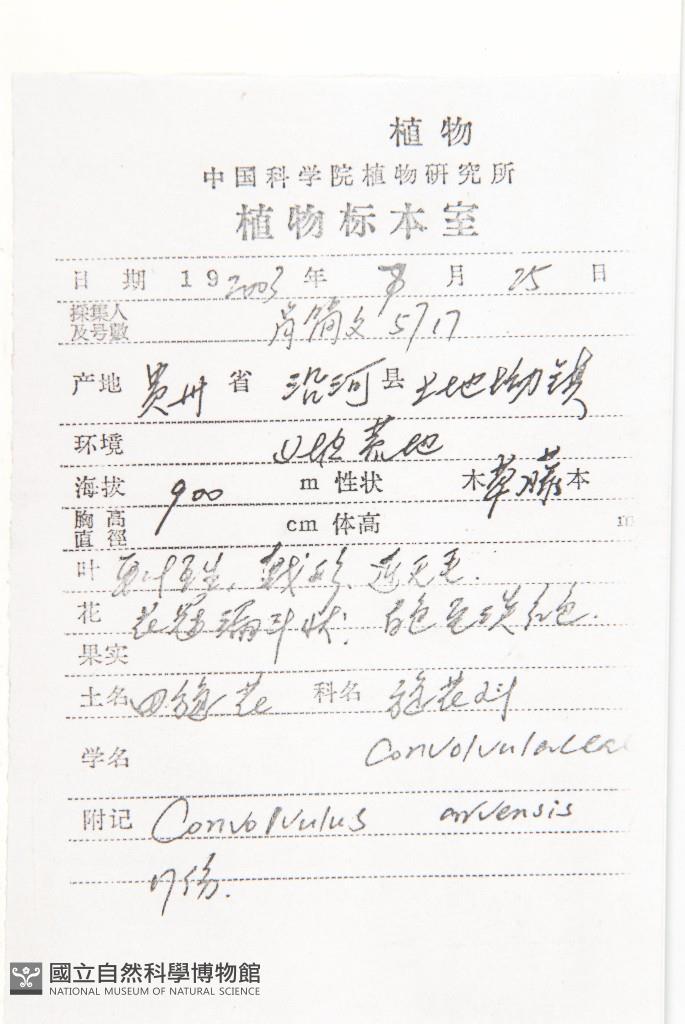 植物
中国科学院植物研究所
植物标本室
日期 19 2003 年 月 25 日
採集人及号數 肖简文 5717
产地 贵州 省 沿河 县 土地坳镇
环境 山地荒地
海拔 900 m 性状 木 草 藤 本
胸高直徑 cm 体高 m
叶 单叶互生, 戟形, 近无毛.
花 花冠漏斗状, 白色至淡红色.
果实
土名 田旋花 科名 旋花科
学名 Convolvulaceae
附记 Convolvulus arvensis
17份.
國立自然科學博物館
NATIONAL MUSEUM OF NATURAL SCIENCE